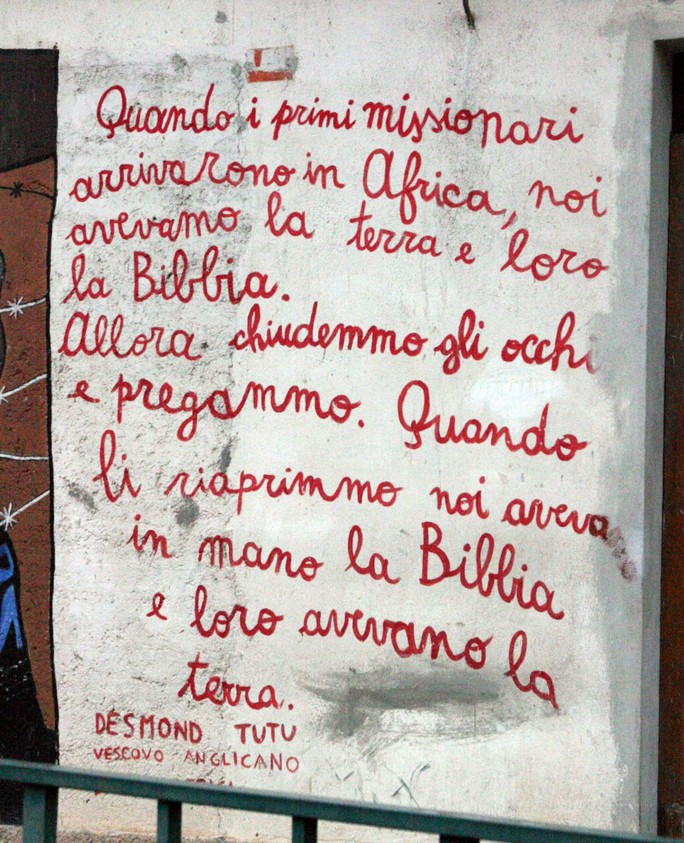 Quando i primi missionari
arrivarono in Africa, noi
avevamo la terra e loro
la Bibbia.
Allora chiudemmo gli occhi
e pregammo. Quando
li riaprimmo noi avevamo
in mano la Bibbia
e loro avevano la
terra.
DESMOND TUTU
VESCOVO ANGLICANO